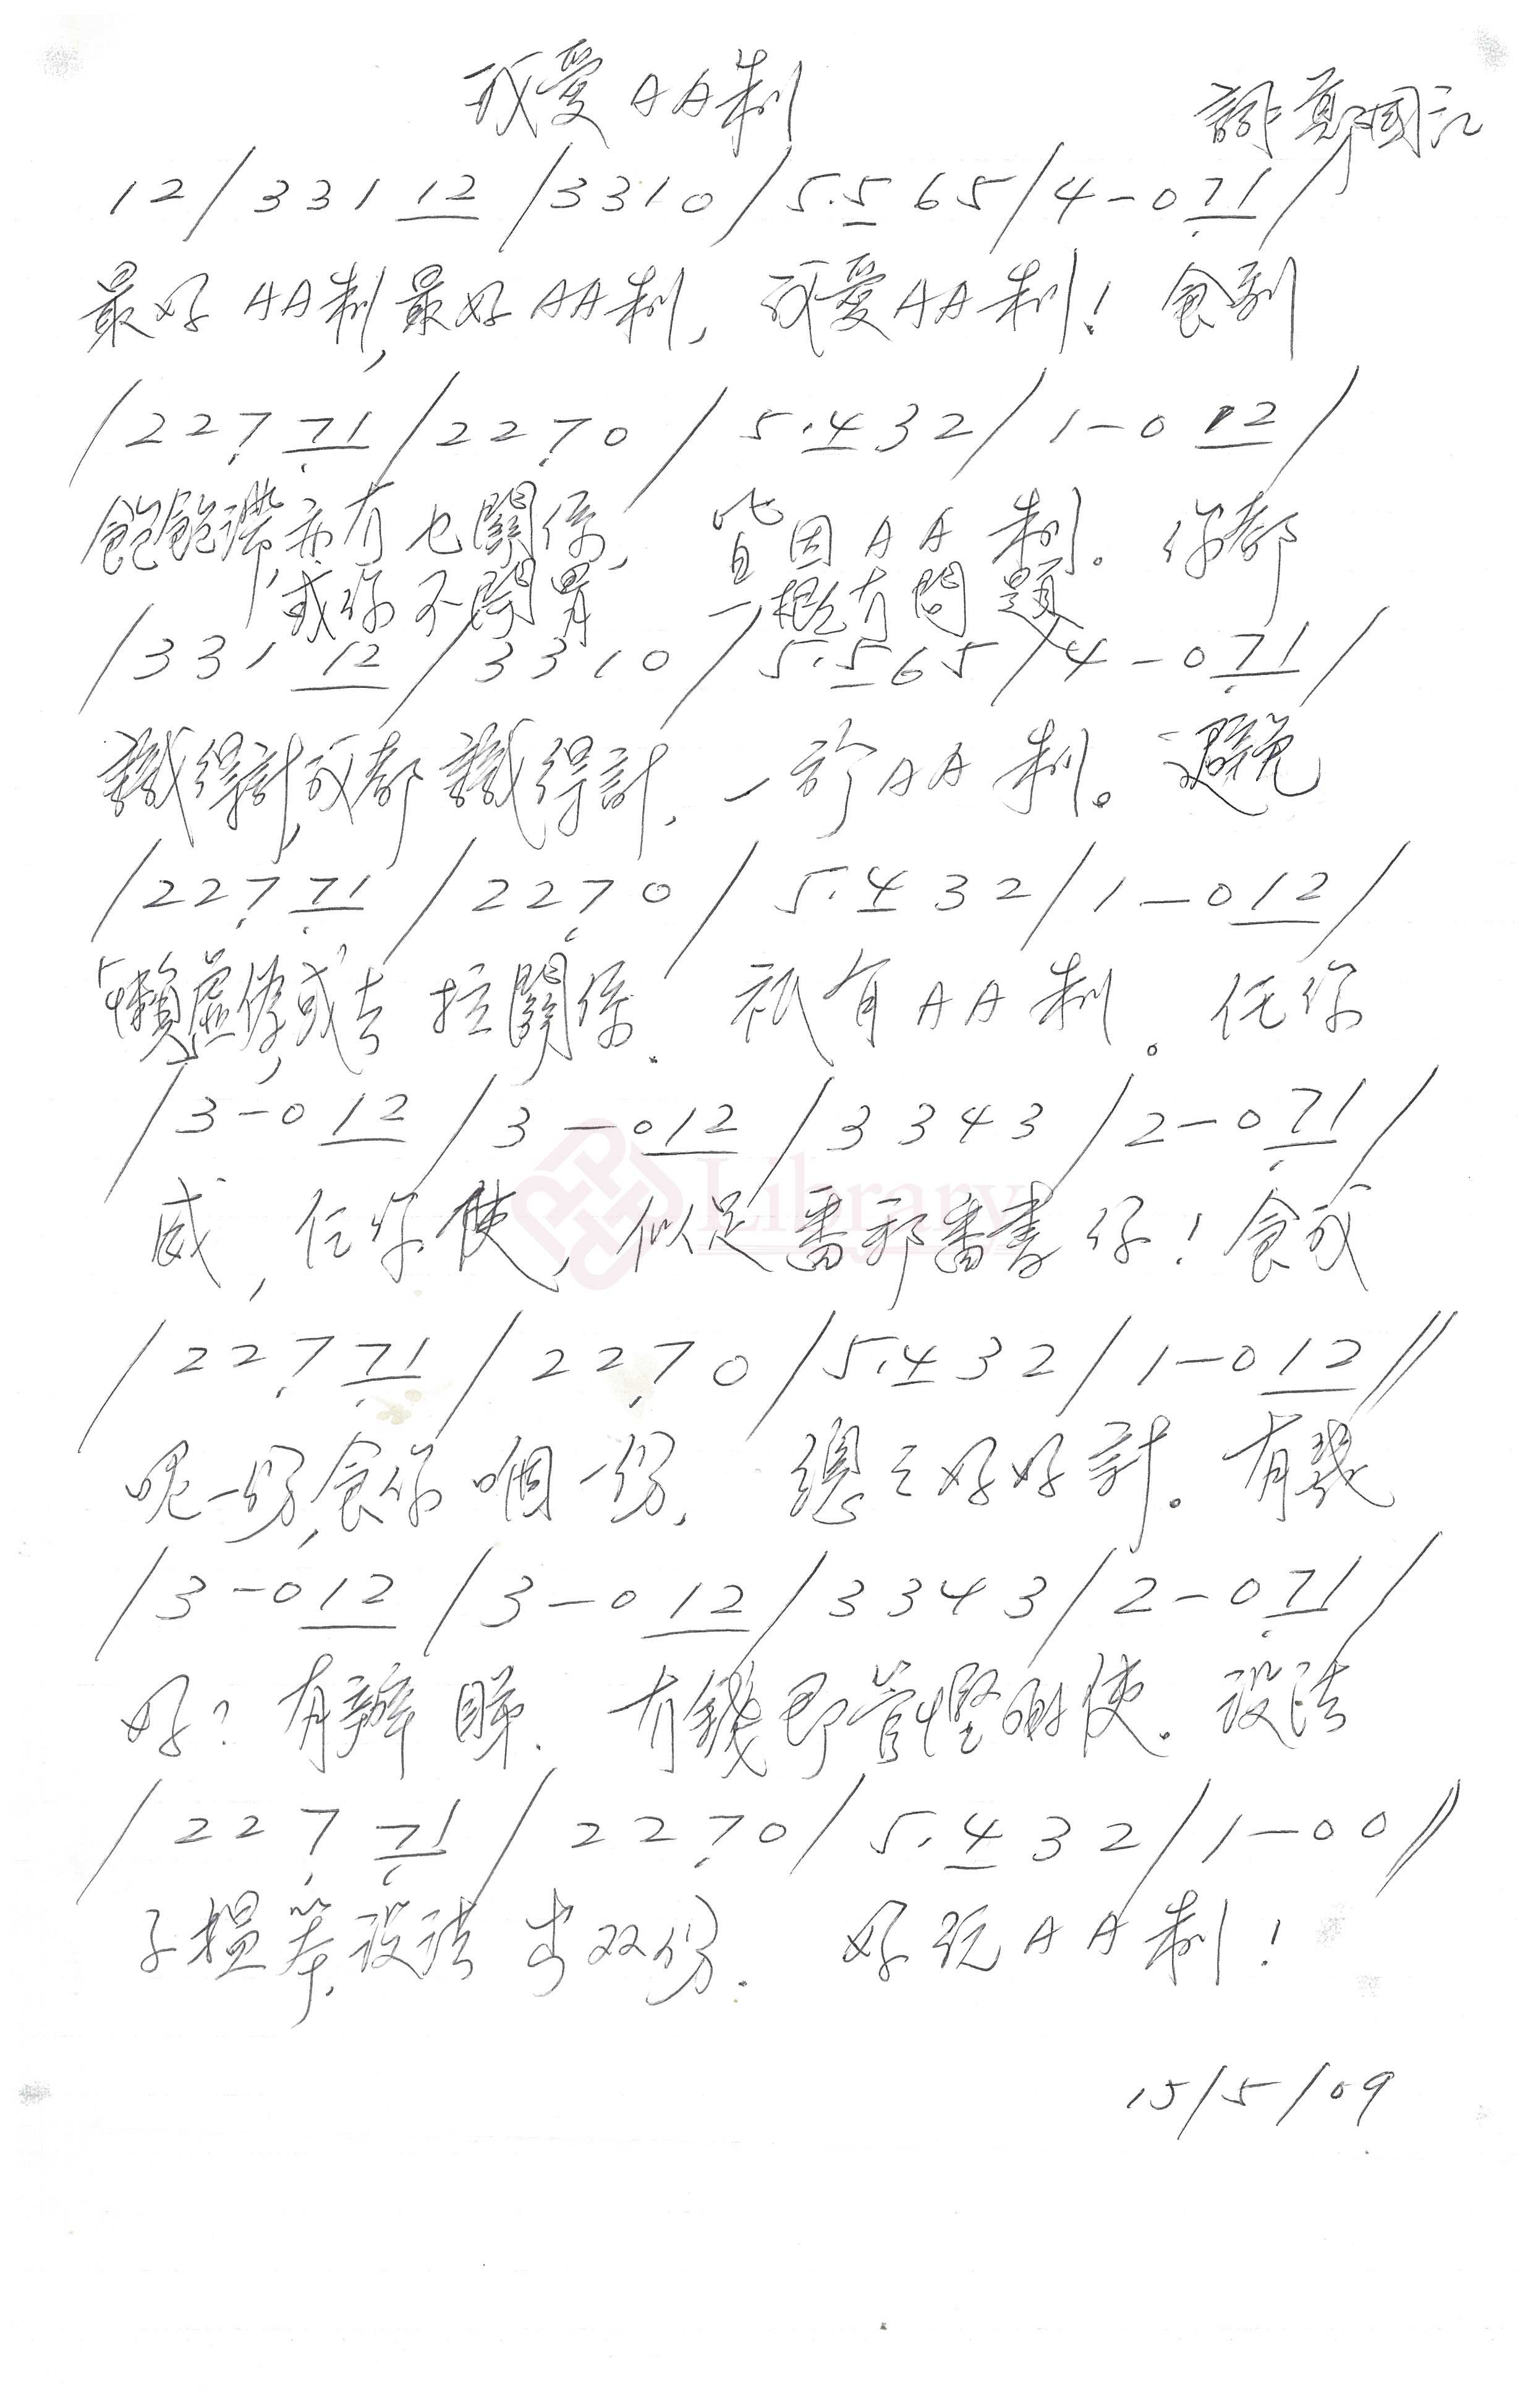 我愛AA制
詞:鄭國江
12/331 12/3310/5.5 65/4-0 71/
最好AA制,最好AA制,我愛AA制!食到
/227 71/2270/5.4 32/1-0 12/
飽飽滯,亦冇乜關係,皆因AA制。你都
或你不開胃 一概冇問題
/331 12/3310/5.5 65/4-0 71/
識得計,我都識得計,一於AA制。避免
/227 71/2270/5.4 32/1-0 12/
「懶虛偽,或去拉關係.祇有AA制。任你
/3-0 12/3-0 12/3343/2-0 71/
威,任你使,似足番邪番書仔!食我
Library
/227 71/2270/5.4 32/1-0 12//
呢一份,食你嗰一份,總之好好計。有幾
/3-0 12/3-0 12/3343/2-0 71/
好?有辦睇.冇錢即管慳啲使。設法
/227 71/2270/5.4 32/1-00//
子搵笨,設法 双份.好玩AA制!
15/5/09